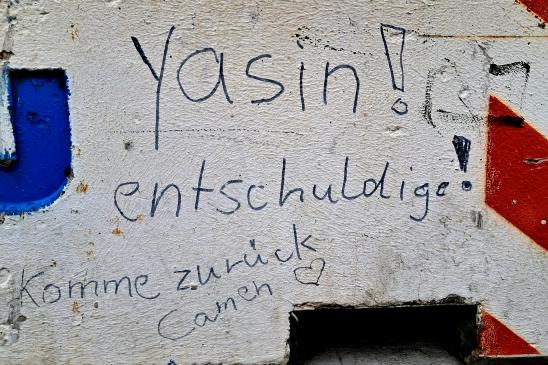 Yasin!
entschuldige!
Komme zurück
Camen ♡